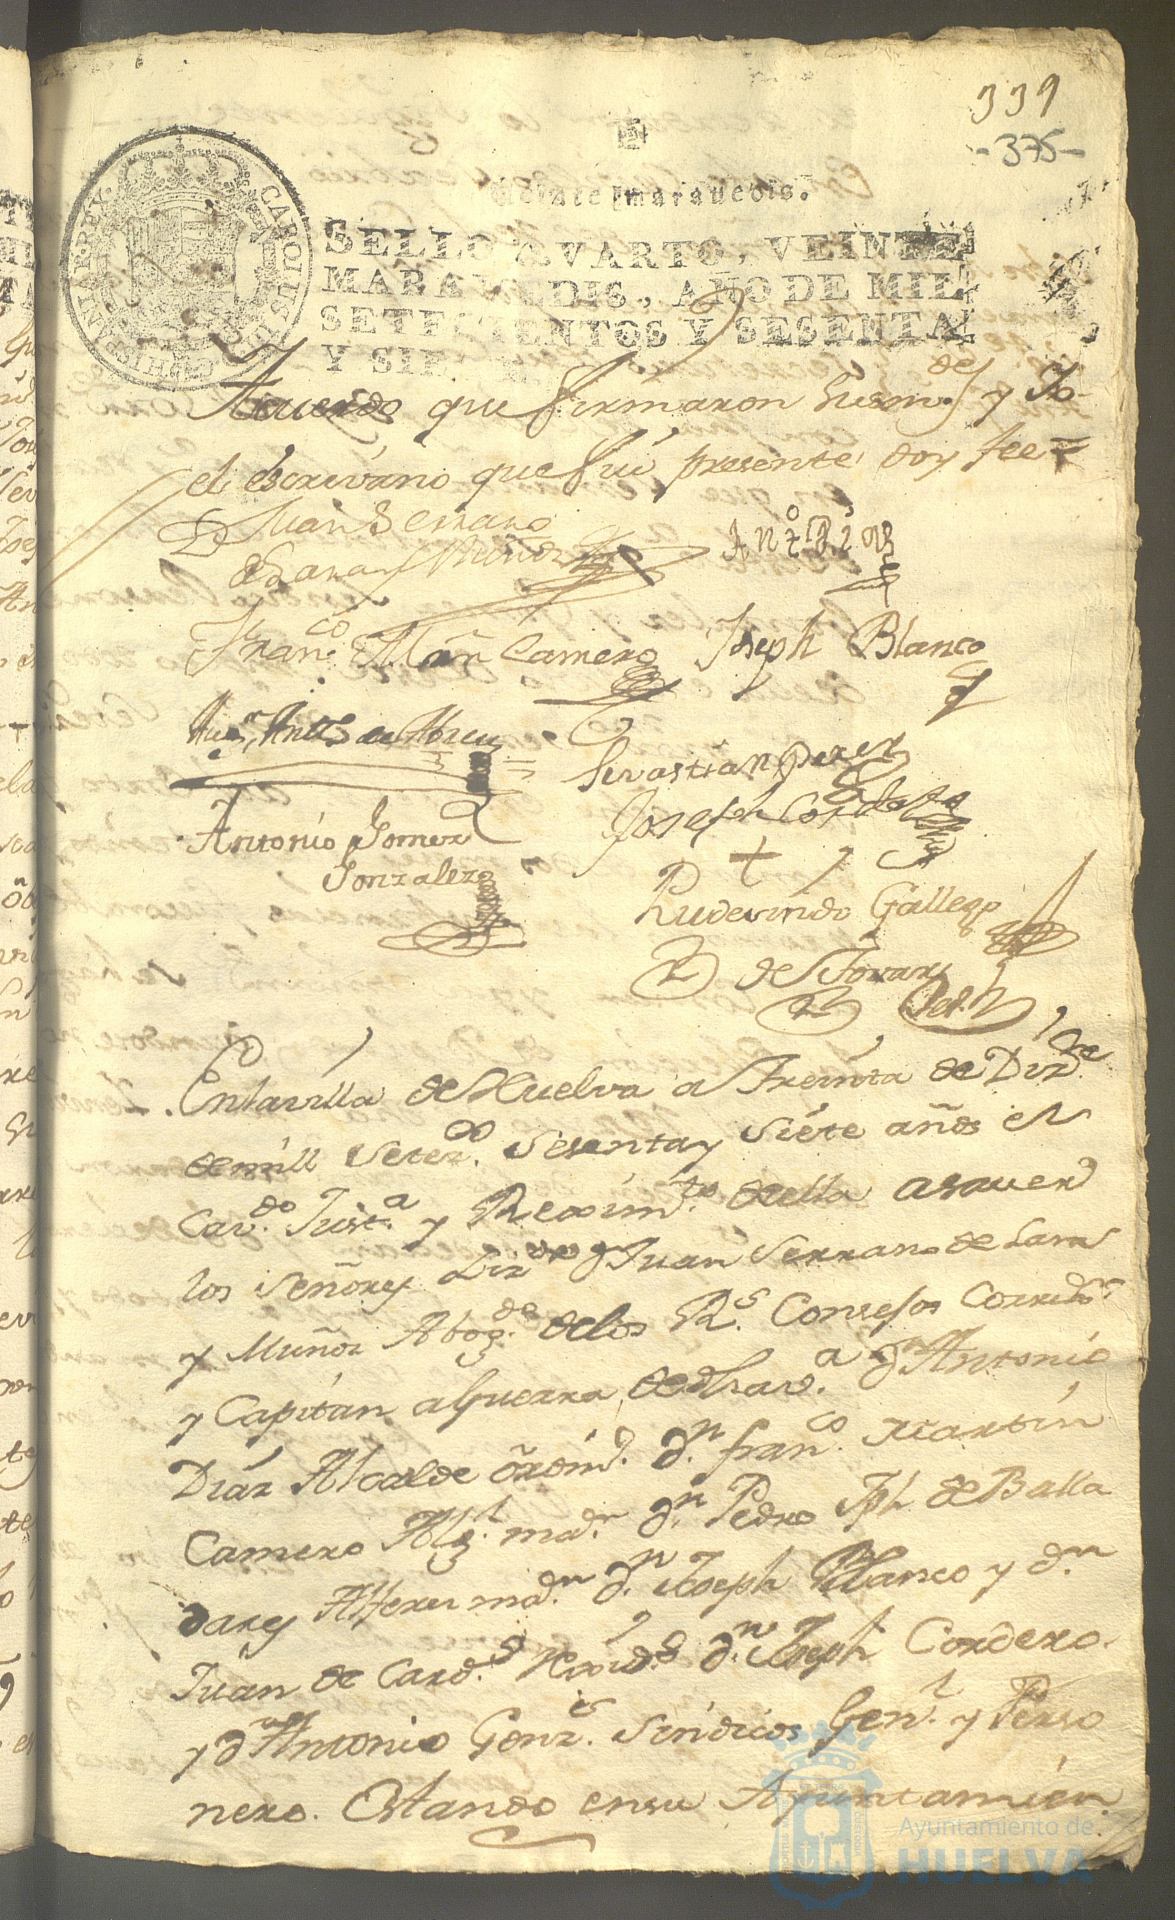 339
-375-
Veinte maravedis.
SELLO QVARTO, VEINTE
MARAVEDIS, AÑO DE MIL
SETECIENTOS Y SESENTA
Y SIETE.
CAROLUS III D G HISPANIAR REX
Acuerdo que firmaron sus md.es y Yo
el escrivano que fui presente doy fee =
D Juan Serrano
de Lara y Muñoz
Ant.o Diaz
Fran.co Mrñ Camero Joseph Blanco
Sevastian Perez
Joseph Cordero
Antonio Gomez
Gonzalez
Rudesindo Gallego
de Tovar
En la villa de Huelva a treinta de Diz.re
de mill setez.os sesenta y siete años el
Cav.do Just.a y Reximi.to de ella asaver
los señores Liz.do d.n Juan Serrano de Lara
y Muñoz Abog.do de los R.s Consejos Corred.or
y Capitan a guerra de d.n Antonio
Diaz Alcalde ordin.o d.n fran.co Martin
Camero Alg.l ma.r d.n Pedro Jph de Balla
dares Alferez ma.r d.n Joseph Blanco y d.n
Juan de Card.s d.n Joseph Cordero
y d.n Antonio Gonz.s sindicos Gen.l y Perso
nero. Estando en su Ayuntamien
Ayuntamiento de
HUELVA